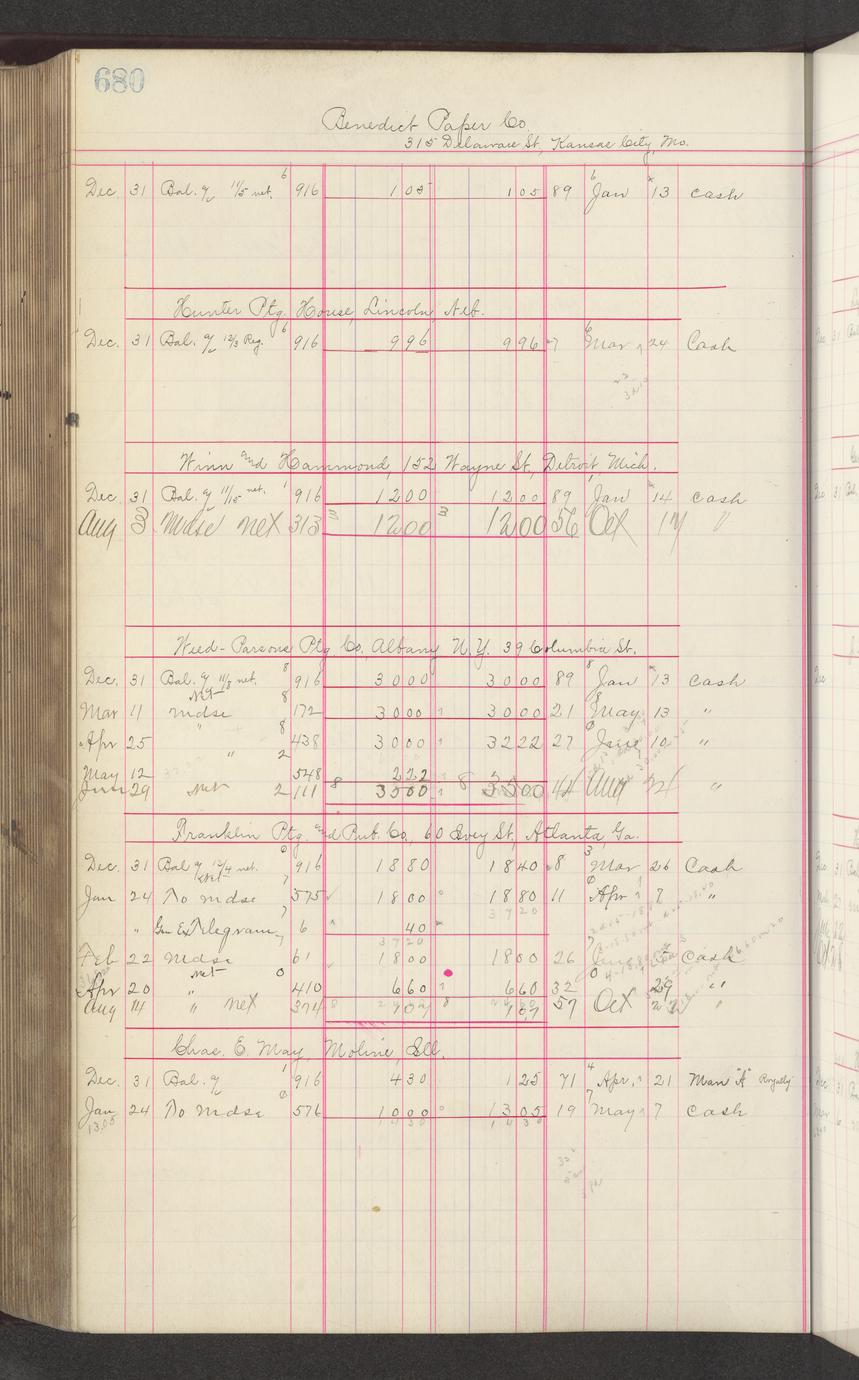 680
Benedict Paper Co
315 Delaware St, Kansas City, Mo.
Dec. 31 Bal. 11/5 net. 6 916 105 105 89 6 Jan 13 Cash
Hunter Ptg. House, Lincoln, Neb.
Dec. 31 Bal. 12/3 Reg. 6 916 996 996 7 6 Mar 24 Cash
Winn and Hammond, 152 Wayne St, Detroit, Mich.
Dec. 31 Bal. 11/15 net. 1 916 1200 1200 89 Jan 14 Cash
Aug 3 Mdse net 313 3 1200 3 1200 56 Oct 14 "
Weed-Parsons Ptg Co, Albany N.Y. 39 Columbia St.
Dec. 31 Bal. 11/8 net. 8 916 3000 3000 89 8 Jan 13 Cash
Mar 11 Mdse Net 8 172 3000 3000 21 8 May 13 "
Apr 25 " 8 438 3000 3222 27 June 10 "
May 12 " 2 548 222
June 29 Net 2 111 8 3500 8 3500 44 Aug 24 "
Franklin Ptg. and Pub. Co, 60 Ivey St, Atlanta, Ga.
Dec. 31 Bal 12/4 net. 916 1880 1840 8 3 Mar 26 Cash
Jan 24 To Mdse Net 7 575 1800 1880 11 Apr 8 "
3720
" Gen Ex Telegram 7 6 40
3720
Feb 22 Mdse 61 1800 1800 26 June Cash
Apr 20 " net 0 410 660 660 32 29 "
Aug 14 " net 374 8 107 8 107 57 Oct "
Chas. E. May, Moline, Ill.
Dec. 31 Bal. 1 916 430 125 71 4 Apr. 21 Man "A" Royalty
Jan 24 To Mdse 0 576 1000 1305 19 7 May 7 Cash
13.05 1430 1430